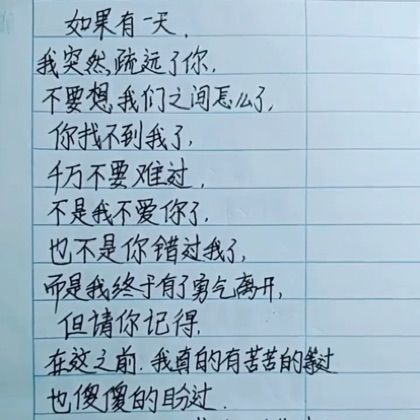 如果有一天,
我突然疏远了你,
不要想我们之间怎么了,
你找不到我了,
千万不要难过,
不是我不爱你了,
也不是你错过我了,
而是我终于有了勇气离开,
但请你记得,
在这之前,我真的有苦苦的等过
也傻傻的盼过.